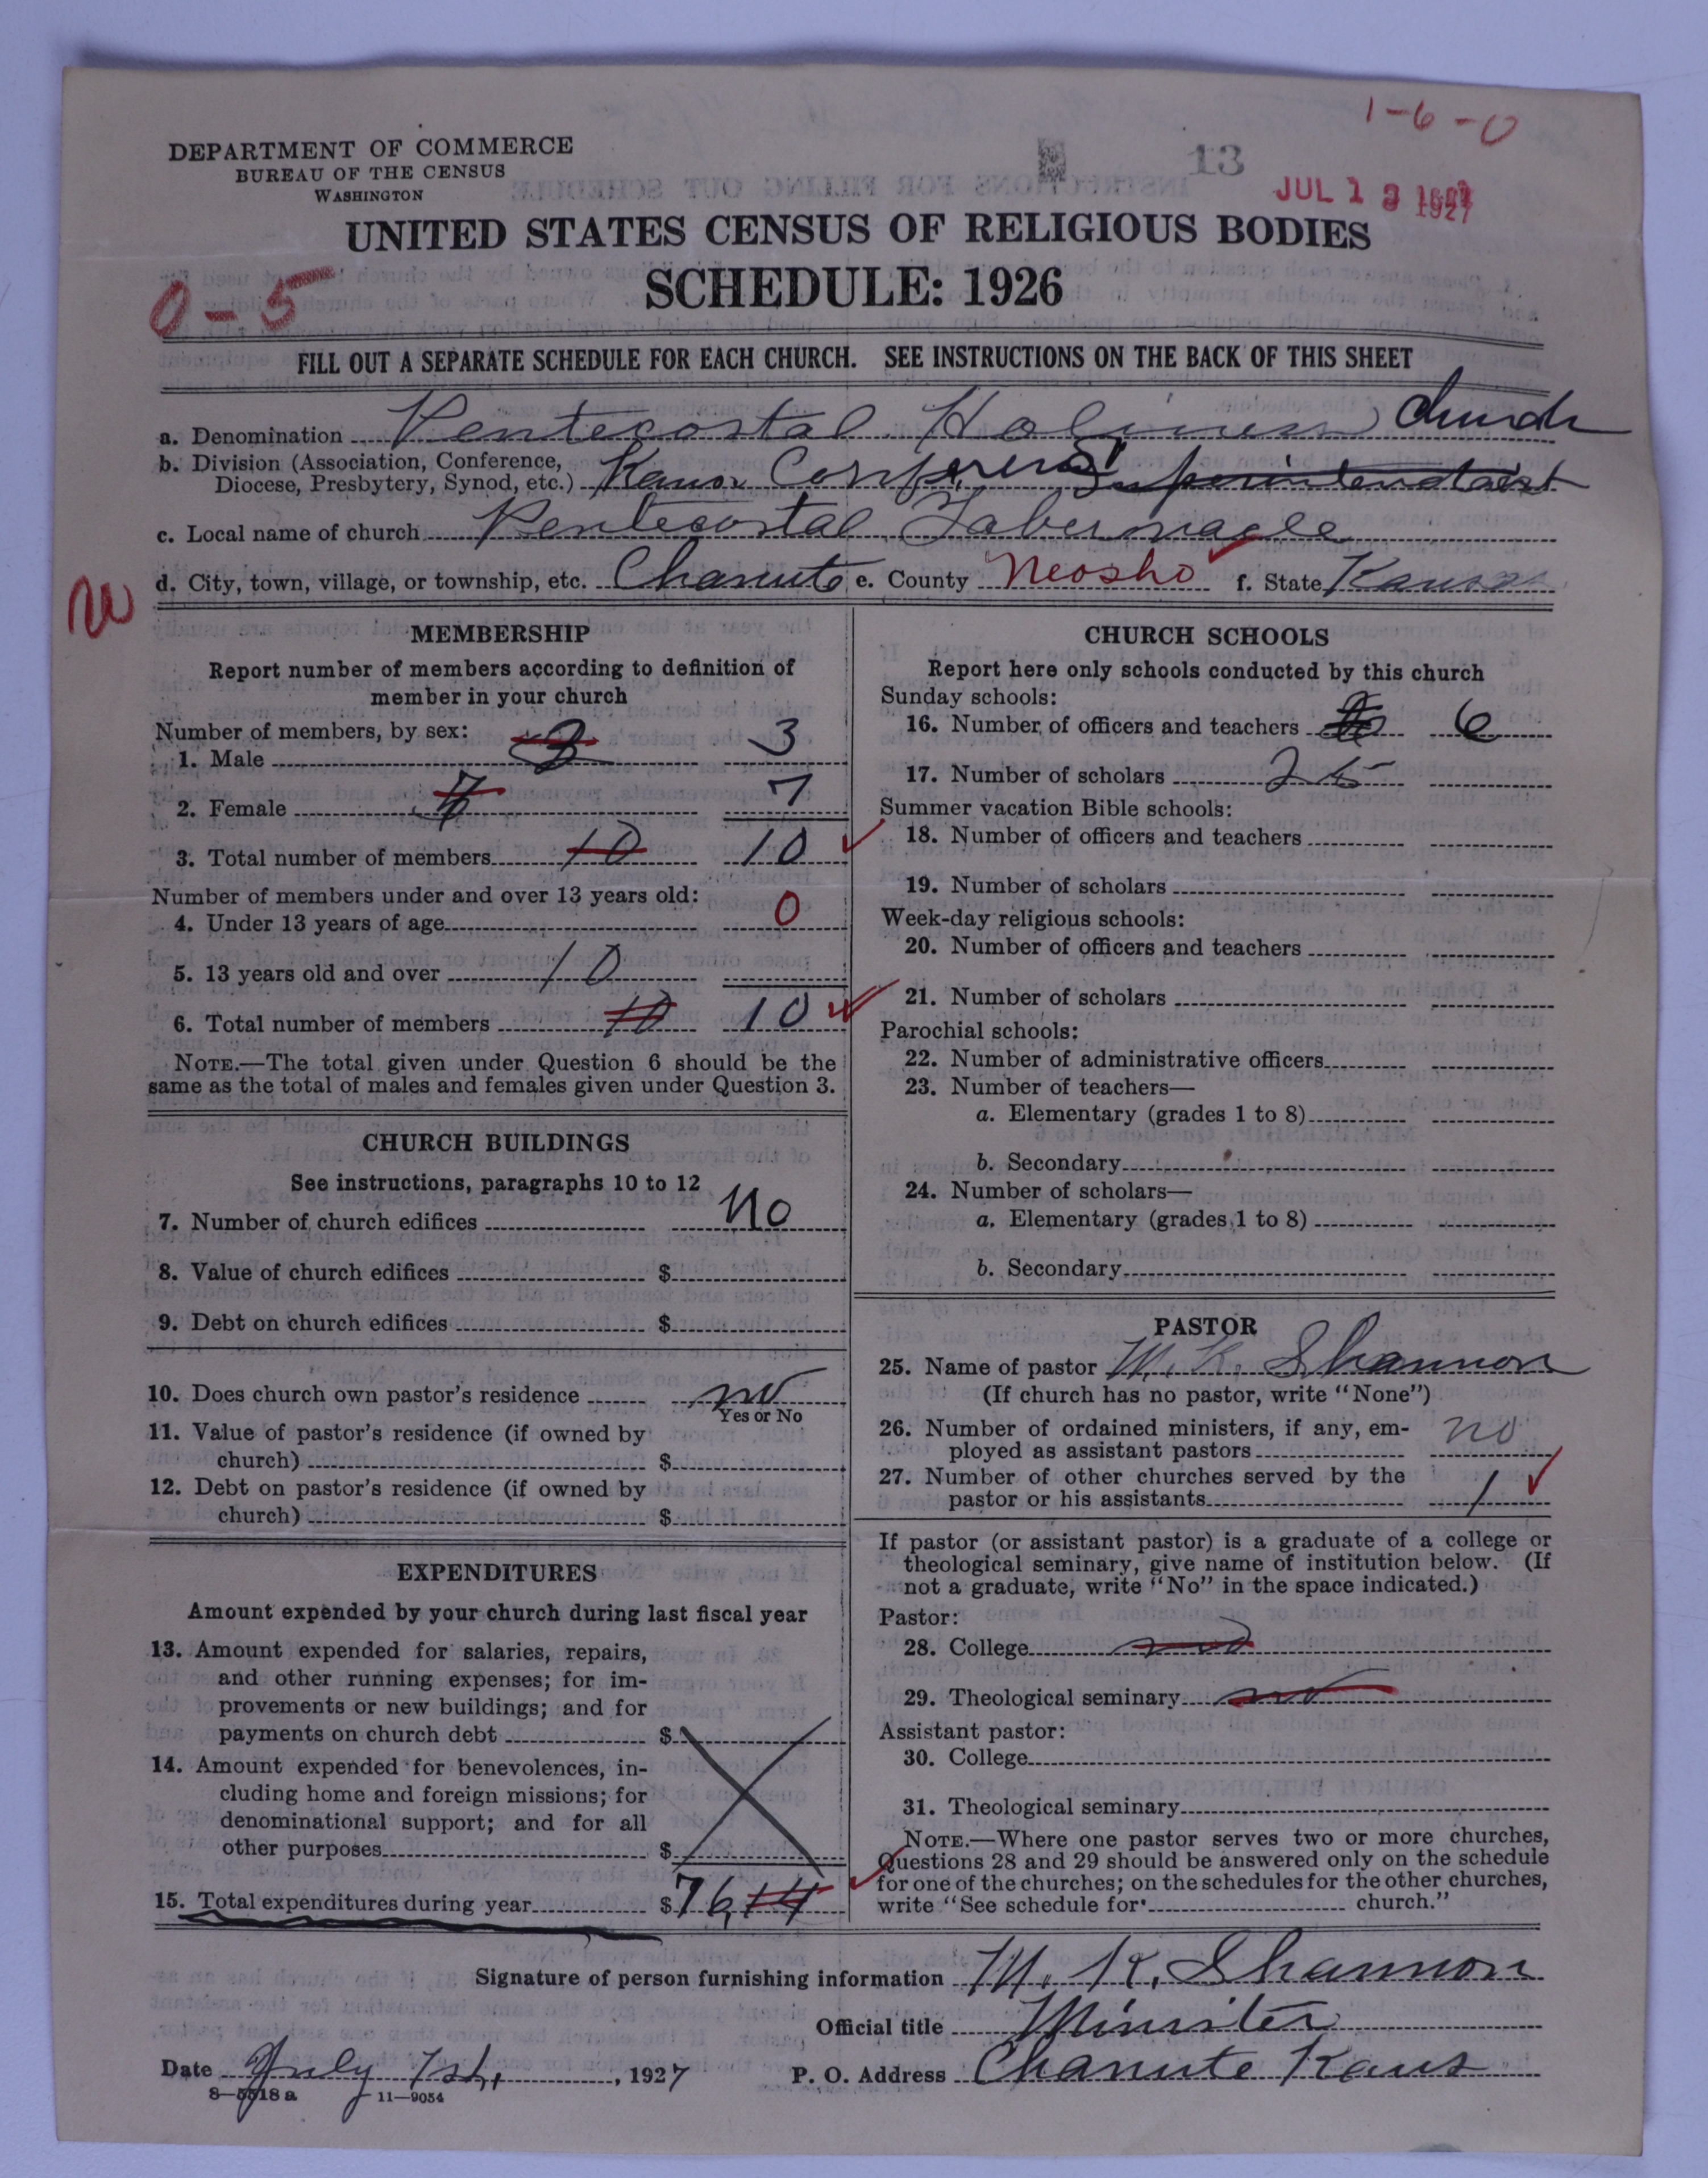 1-6-0
13
JUL 13 1927
DEPARTMENT OF COMMERCE
BUREAU OF THE CENSUS
WASHINGTON
UNITED STATES CENSUS OF RELIGIOUS BODIES
SCHEDULE: 1926
0-5
FILL OUT A SEPARATE SCHEDULE FOR EACH CHURCH. SEE INSTRUCTIONS ON THE BACK OF THIS SHEET
a. Denomination Pentecostal Holiness Church
b. Division (Association, Conference,
Diocese, Presbytery, Synod, etc.) Kansas Conference
c. Local name of church Pentecostal Tabernacle
d. City, town, village, or township, etc. Chanute e. County Neosho f. State Kansas
MEMBERSHIP
Report number of members according to definition of
member in your church
Number of members, by sex:
1. Male 3 3
2. Female 7 7
3. Total number of members 10 10
Number of members under and over 13 years old:
4. Under 13 years of age 0
5. 13 years old and over 10
6. Total number of members 10 10
NOTE.—The total given under Question 6 should be the
same as the total of males and females given under Question 3.
CHURCH BUILDINGS
See instructions, paragraphs 10 to 12
7. Number of church edifices No
8. Value of church edifices $
9. Debt on church edifices $
10. Does church own pastor's residence no
Yes or No
11. Value of pastor's residence (if owned by
church) $
12. Debt on pastor's residence (if owned by
church) $
EXPENDITURES
Amount expended by your church during last fiscal year
13. Amount expended for salaries, repairs,
and other running expenses; for im-
provements or new buildings; and for
payments on church debt $
14. Amount expended for benevolences, in-
cluding home and foreign missions; for
denominational support; and for all
other purposes $
15. Total expenditures during year $76,14
CHURCH SCHOOLS
Report here only schools conducted by this church
Sunday schools:
16. Number of officers and teachers 6
17. Number of scholars 25
Summer vacation Bible schools:
18. Number of officers and teachers
19. Number of scholars
Week-day religious schools:
20. Number of officers and teachers
21. Number of scholars
Parochial schools:
22. Number of administrative officers
23. Number of teachers—
a. Elementary (grades 1 to 8)
b. Secondary
24. Number of scholars—
a. Elementary (grades 1 to 8)
b. Secondary
PASTOR
25. Name of pastor M. K. Shannon
(If church has no pastor, write "None")
26. Number of ordained ministers, if any, em-
ployed as assistant pastors no
27. Number of other churches served by the
pastor or his assistants 1
If pastor (or assistant pastor) is a graduate of a college or
theological seminary, give name of institution below. (If
not a graduate, write "No" in the space indicated.)
Pastor:
28. College no
29. Theological seminary no
Assistant pastor:
30. College
31. Theological seminary
NOTE.—Where one pastor serves two or more churches,
Questions 28 and 29 should be answered only on the schedule
for one of the churches; on the schedules for the other churches,
write "See schedule for church."
Signature of person furnishing information M. K. Shannon
Official title Minister
Date July 1st, , 1927 P. O. Address Chanute Kans
8—5518 a 11—9054